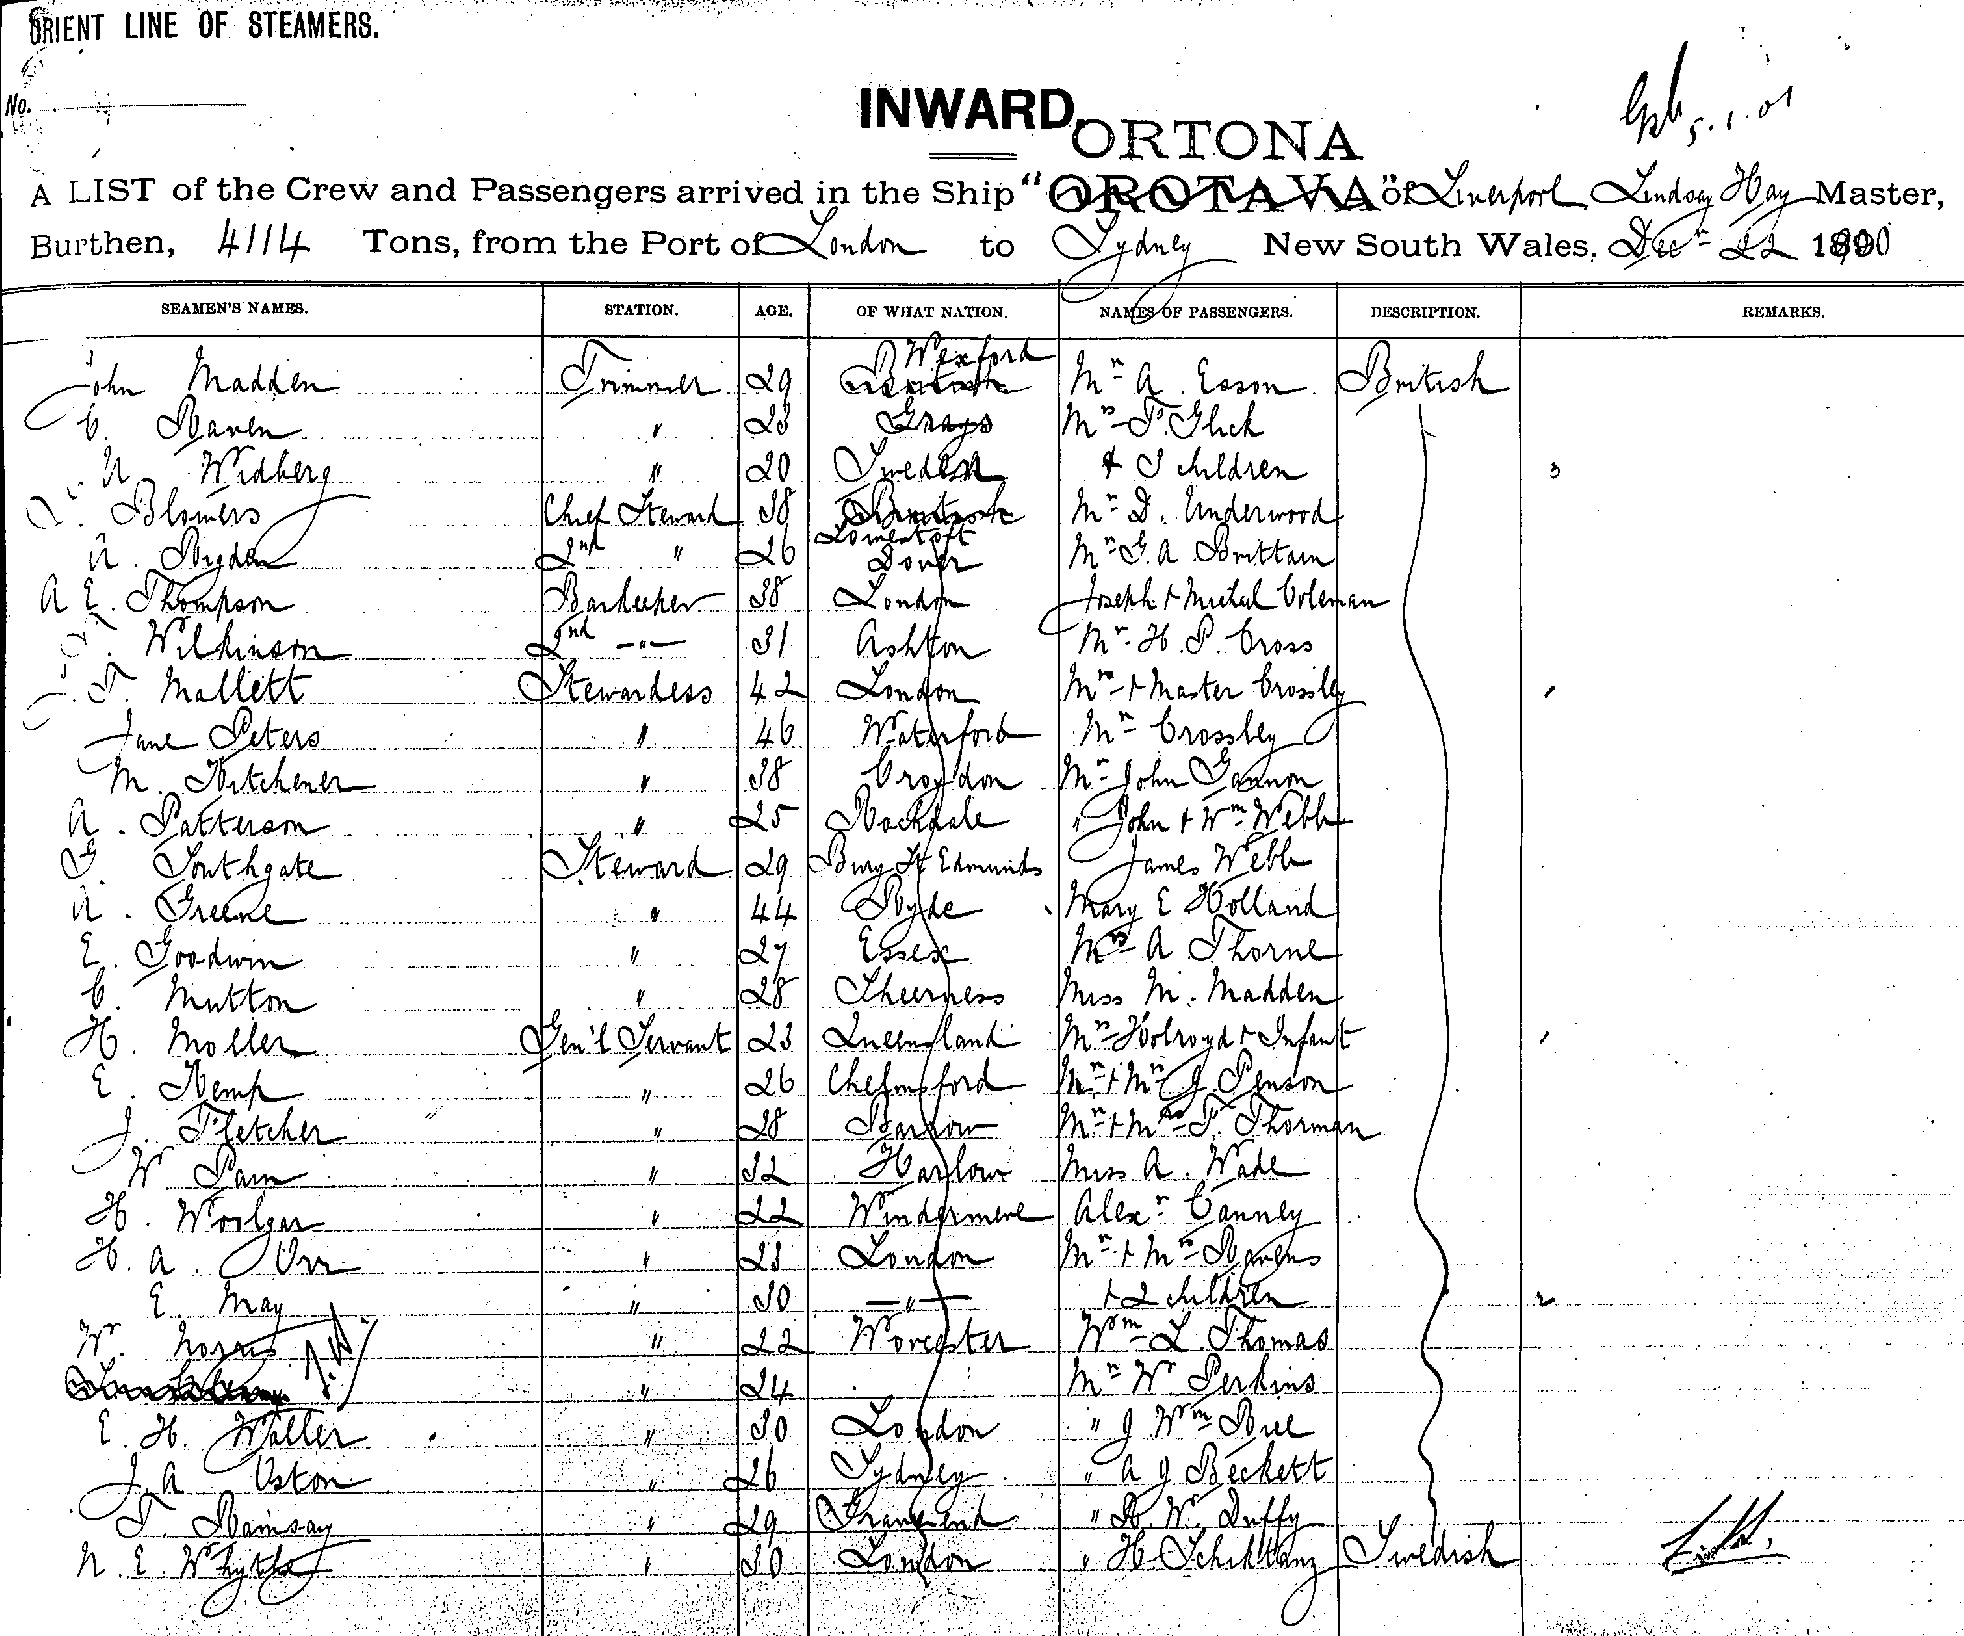 ORIENT LINE OF STEAMERS.
No.
5.1.01
INWARD.
ORTONA
A LIST of the Crew and Passengers arrived in the Ship "OROTAVA" of Liverpool Lindsay Hay Master,
Burthen, 4114 Tons, from the Port of London to Sydney New South Wales, Decr 22 1900
SEAMEN'S NAMES. STATION. AGE. OF WHAT NATION. NAMES OF PASSENGERS. DESCRIPTION. REMARKS.
John Madden Trimmer 29 British Wexford Mr A. Esson British
C. Raven " 23 Grays Mrs Glick
Widberg " 20 Sweden & 3 children 3
Blowers Chief Steward 38 British Lowestoft Mr D. Underwood
A. Rigden 2nd " 26 Dover Mr G. A Brittain
A E. Thompson Barkeeper 38 London Joseph & Michel Coleman
Wilkinson 2nd —"— 31 Ashton Mr H. P. Cross
T. Mallett Stewardess 42 London Mrs & Master Crossley
Jane Peters " 46 Waterford Mr Crossley
M. Kitchener " 38 Croydon Mr John Gannon
A. Patterson " 25 Rochdale " John & Wm Webb
G. Southgate Steward 29 Bury St Edmunds James Webb
A. Greene " 44 Ryde Mary E Holland
E. Goodwin " 27 Essex Mrs A Thorne
C. Mutton " 28 Sheerness Miss M. Madden
H. Moller Gen'l Servant 23 Queensland Mrs Holroyd & Infant
E. Kemp " 26 Chelmsford Mr & Mrs J. Penson
J. Fletcher " 28 Barrow Mr & Mrs T. Thorman
W Pam " 32 Harlow Miss A. Wade
H. Woolgar " 22 Windermere Alexr Canney
H. A. Orr " 23 London Mr & Mrs Ravens
E. May " 30 —"— & 2 children 2
W. Norris " 22 Worcester Wm L. Thomas
" 24 Mr W Perkins
E. H. Waller " 30 London " J Wm Bree
J. A Oston " 26 Sydney " A J Beckett
T. Ramsay " 29 Gravesend " R. W. Duffy
N. E. Whyth " 30 London " H Schiktanz Swedish